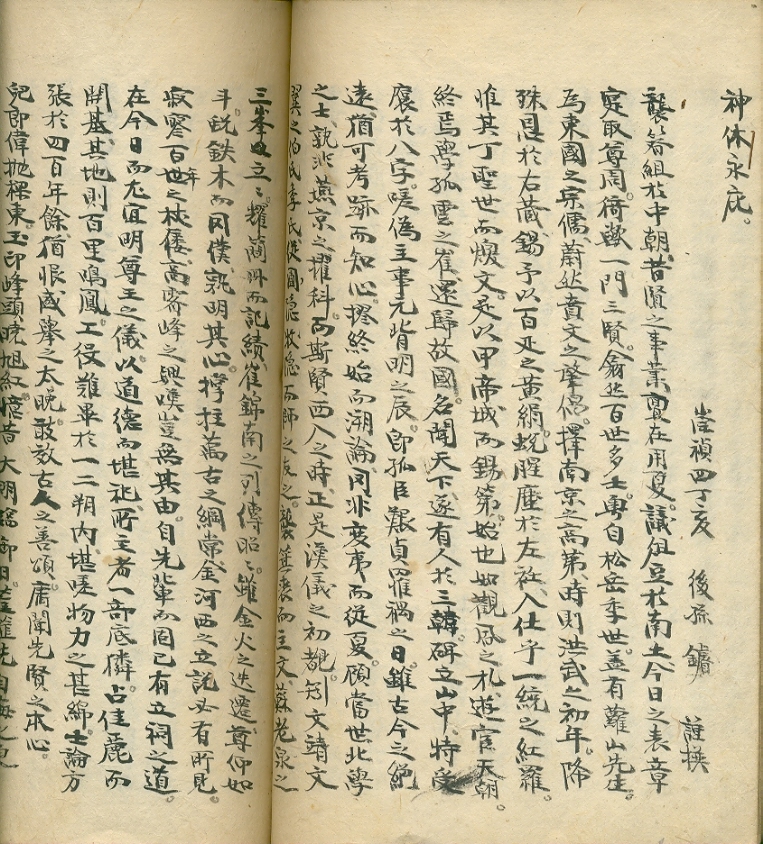 神休永庇
崇禎四丁亥 後孫 鏞 謹撰
襲簪組於中朝昔賢之事業亶在用夏議俎豆於南土今日之表章
寔取尊周猗歟一門三賢翕然百世多士粤自松岳季世蓋有蘿山先生
爲東國之宗儒蔚然賁文之肇倡擢南京之高第時則洪武之初年降
殊恩於右蔵錫予以百疋之黃絹蛻腥塵於左衽入仕乎一統之紅羅
惟其丁聖世而煥文是以甲帝城而錫第始也如觀風之札遊宦天朝
終焉學孤雲之崔還歸故國名聞天下遂有人於三韓碑立山中特受
褒於八字嗟僞主事元背明之辰卽孤臣艱貞罹禍之日雖古今之絕
遠猶可考跡而知心撮終始而溯論罔非變夷而從夏顧當世北學
之士孰非燕京之擢科而斯賢西入之時正是漢儀之初覩矧文靖文
翼之伯氏季氏從圃隱牧隱而師之友之裘箕裘而主文蘇老泉之
三峯竝立立耀簡冊而記績崔錦南之列傳昭昭雖金火之迭遷尊仰如
斗銳鉄木而罔僕孰明其心撑拄萬古之綱常金河西之立說必有所見
寂寥百年世之枝傣高霽峰之興嘆豈無其由自先輩而固已有立祠之道
在今日而尤宜明尊王之儀以道德而堪祀所主者一部底隣占佳麗而
開基其地則百里鳴鳳工役難畢於一二朔內堪嗟物力之甚綿士論方
張於四百年餘猶恨盛擧之太晩敢效古人之善頌庸闡先賢之本心
兒郎偉抛樑東玉印峰頭曉旭紅憶昔大明